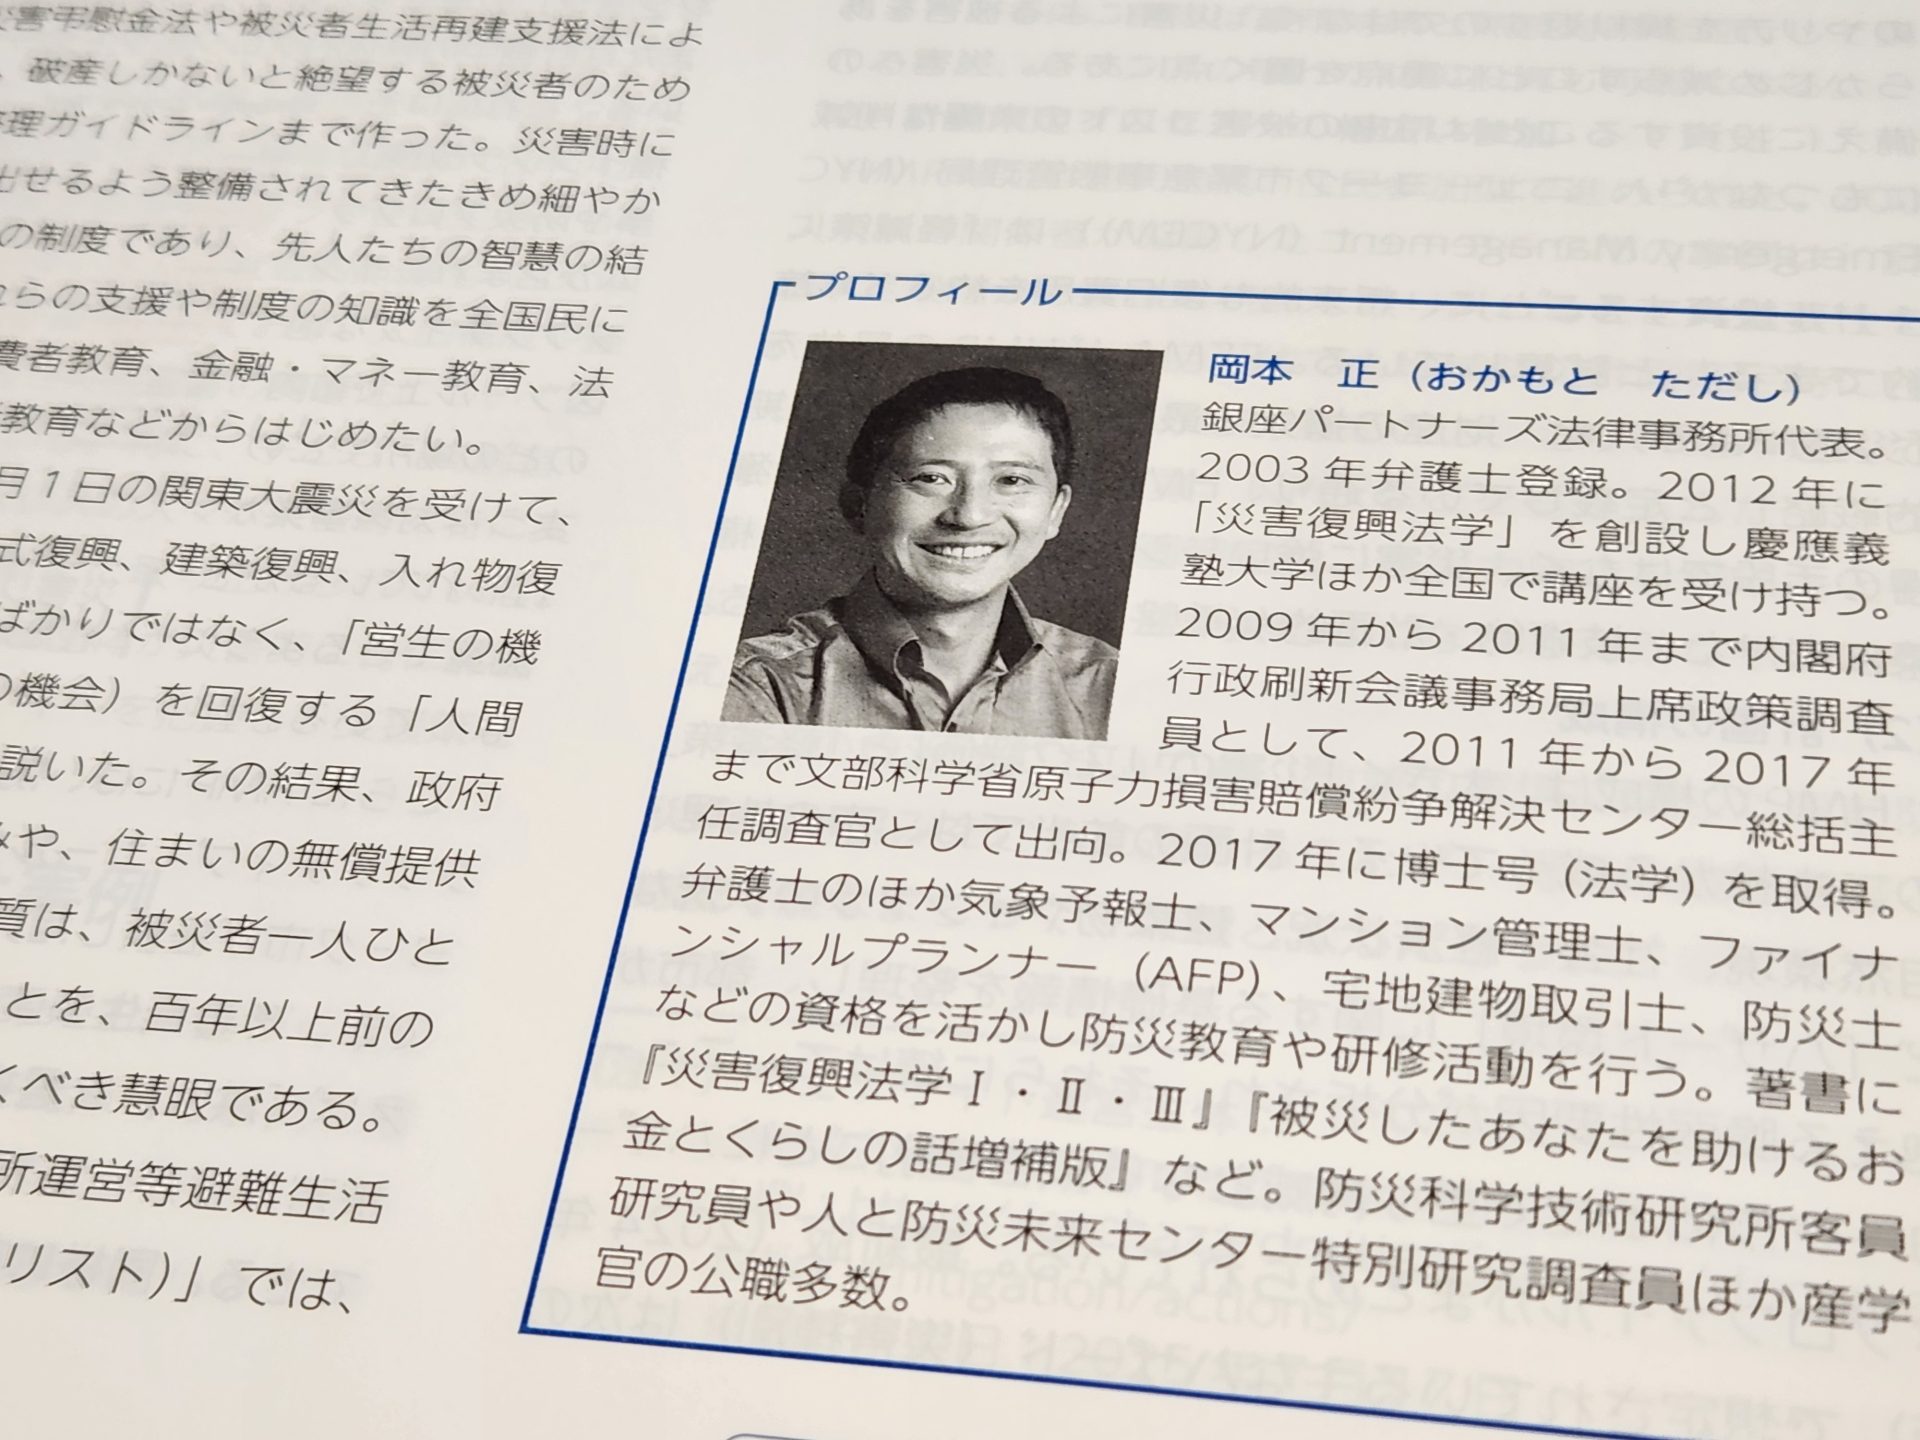 災害弔慰金法や被災者生活再建支援法によ
、破産しかないと絶望する被災者のため
理ガイドラインまで作った。災害時に
出せるよう整備されてきたきめ細やか
の制度であり、先人たちの智慧の結
らの支援や制度の知識を全国民に
費者教育、金融・マネー教育、法
教育などからはじめたい。
月1日の関東大震災を受けて、
式復興、建築復興、入れ物復
ばかりではなく、「営生の機
の機会）を回復する「人間
説いた。その結果、政府
や、住まいの無償提供
質は、被災者一人ひと
とを、百年以上前の
くべき慧眼である。
所運営等避難生活
リスト）」では、
プロフィール
岡本　正（おかもと　ただし）
銀座パートナーズ法律事務所代表。
2003年弁護士登録。2012年に
「災害復興法学」を創設し慶應義
塾大学ほか全国で講座を受け持つ。
2009年から2011年まで内閣府
行政刷新会議事務局上席政策調査
員として、2011年から2017年
まで文部科学省原子力損害賠償紛争解決センター総括主
任調査官として出向。2017年に博士号（法学）を取得。
弁護士のほか気象予報士、マンション管理士、ファイナ
ンシャルプランナー（AFP）、宅地建物取引士、防災士
などの資格を活かし防災教育や研修活動を行う。著書に
『災害復興法学Ⅰ・Ⅱ・Ⅲ』『被災したあなたを助けるお
金とくらしの話増補版』など。防災科学技術研究所客員
研究員や人と防災未来センター特別研究調査員ほか産学
官の公職多数。